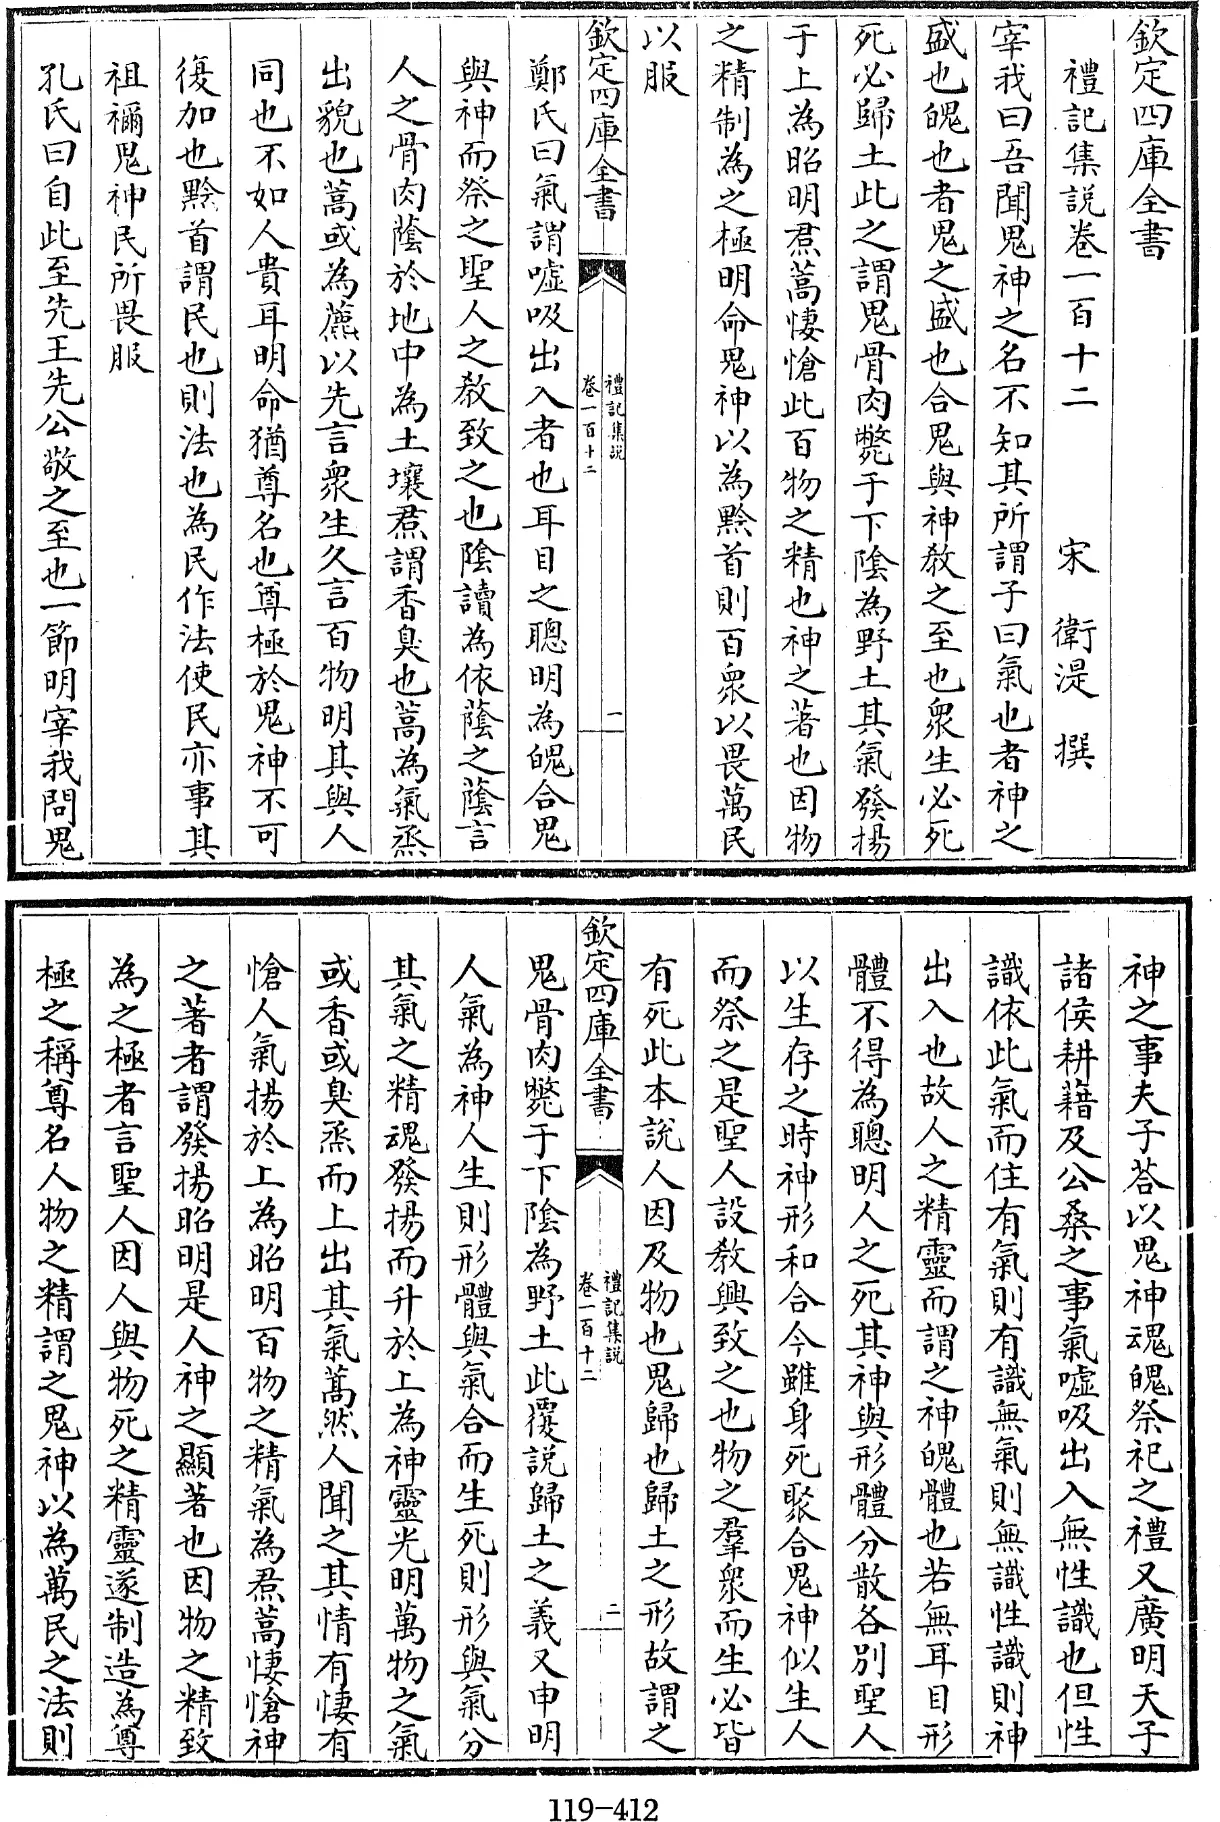 欽定四庫全書
禮記集説卷一百十二
宋 衛湜 撰
宰我曰吾聞鬼神之名不知其所謂子曰氣也者神之
盛也魄也者鬼之盛也合鬼與神教之至也衆生必死
死必歸土此之謂鬼骨肉斃于下陰為野土其氣發揚
于上為昭明焄蒿悽愴此百物之精也神之著也因物
之精制為之極明命鬼神以為黔首則百衆以畏萬民
以服
欽定四庫全書
禮記集説
卷一百十二
一
鄭氏曰氣謂嘘吸出入者也耳目之聰明為魄合鬼
與神而祭之聖人之教致之也陰讀為依蔭之蔭言
人之骨肉蔭於地中為土壤焄謂香臭也蒿為氣烝
出貌也蒿或為藨以先言衆生久言百物明其與人
同也不如人貴耳明命猶尊名也尊極於鬼神不可
復加也黔首謂民也則法也為民作法使民亦事其
祖禰鬼神民所畏服
孔氏曰自此至先王先公敬之至也一節明宰我問鬼
神之事夫子荅以鬼神魂魄祭祀之禮又廣明天子
諸侯耕藉及公桑之事氣嘘吸出入無性識也但性
識依此氣而住有氣則有識無氣則無識性識則神
出入也故人之精靈而謂之神魄體也若無耳目形
體不得為聰明人之死其神與形體分散各別聖人
以生存之時神形和合今雖身死聚合鬼神似生人
而祭之是聖人設教興致之也物之羣衆而生必皆
有死此本説人因及物也鬼歸也歸土之形故謂之
欽定四庫全書
禮記集説
卷一百十二
二
鬼骨肉斃于下陰為野土此覆説歸土之義又申明
人氣為神人生則形體與氣合而生死則形與氣分
其氣之精魂發揚而升於上為神靈光明萬物之氣
或香或臭烝而上出其氣蒿然人聞之其情有悽有
愴人氣揚於上為昭明百物之精氣為焄蒿悽愴神
之著者謂發揚昭明是人神之顯著也因物之精致
為之極者言聖人因人與物死之精靈遂制造為尊
極之稱尊名人物之精謂之鬼神以為萬民之法則
119-412